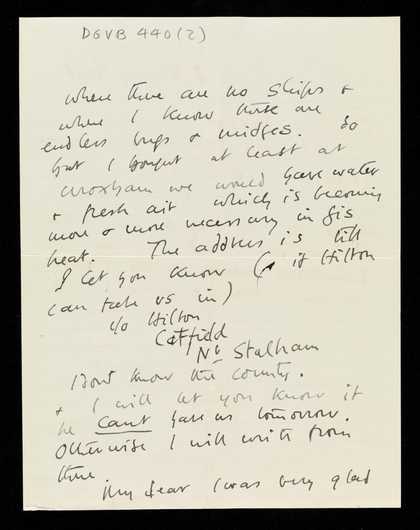 DGVB 440(2)
where there are no ships &
where I know there are
endless bugs & midges. So
but I thought at least at
Wroxham we would have water
& fresh air which is becoming
more & more necessary in this
heat. The address is till
I let you know (if Hilton
can take us in)
c/o Hilton
Catfield
Nr Stalham
Dont know the county.
& I will let you know if
he Cant have us tomorrow.
Otherwise I will write from
there.
My dear I was very glad